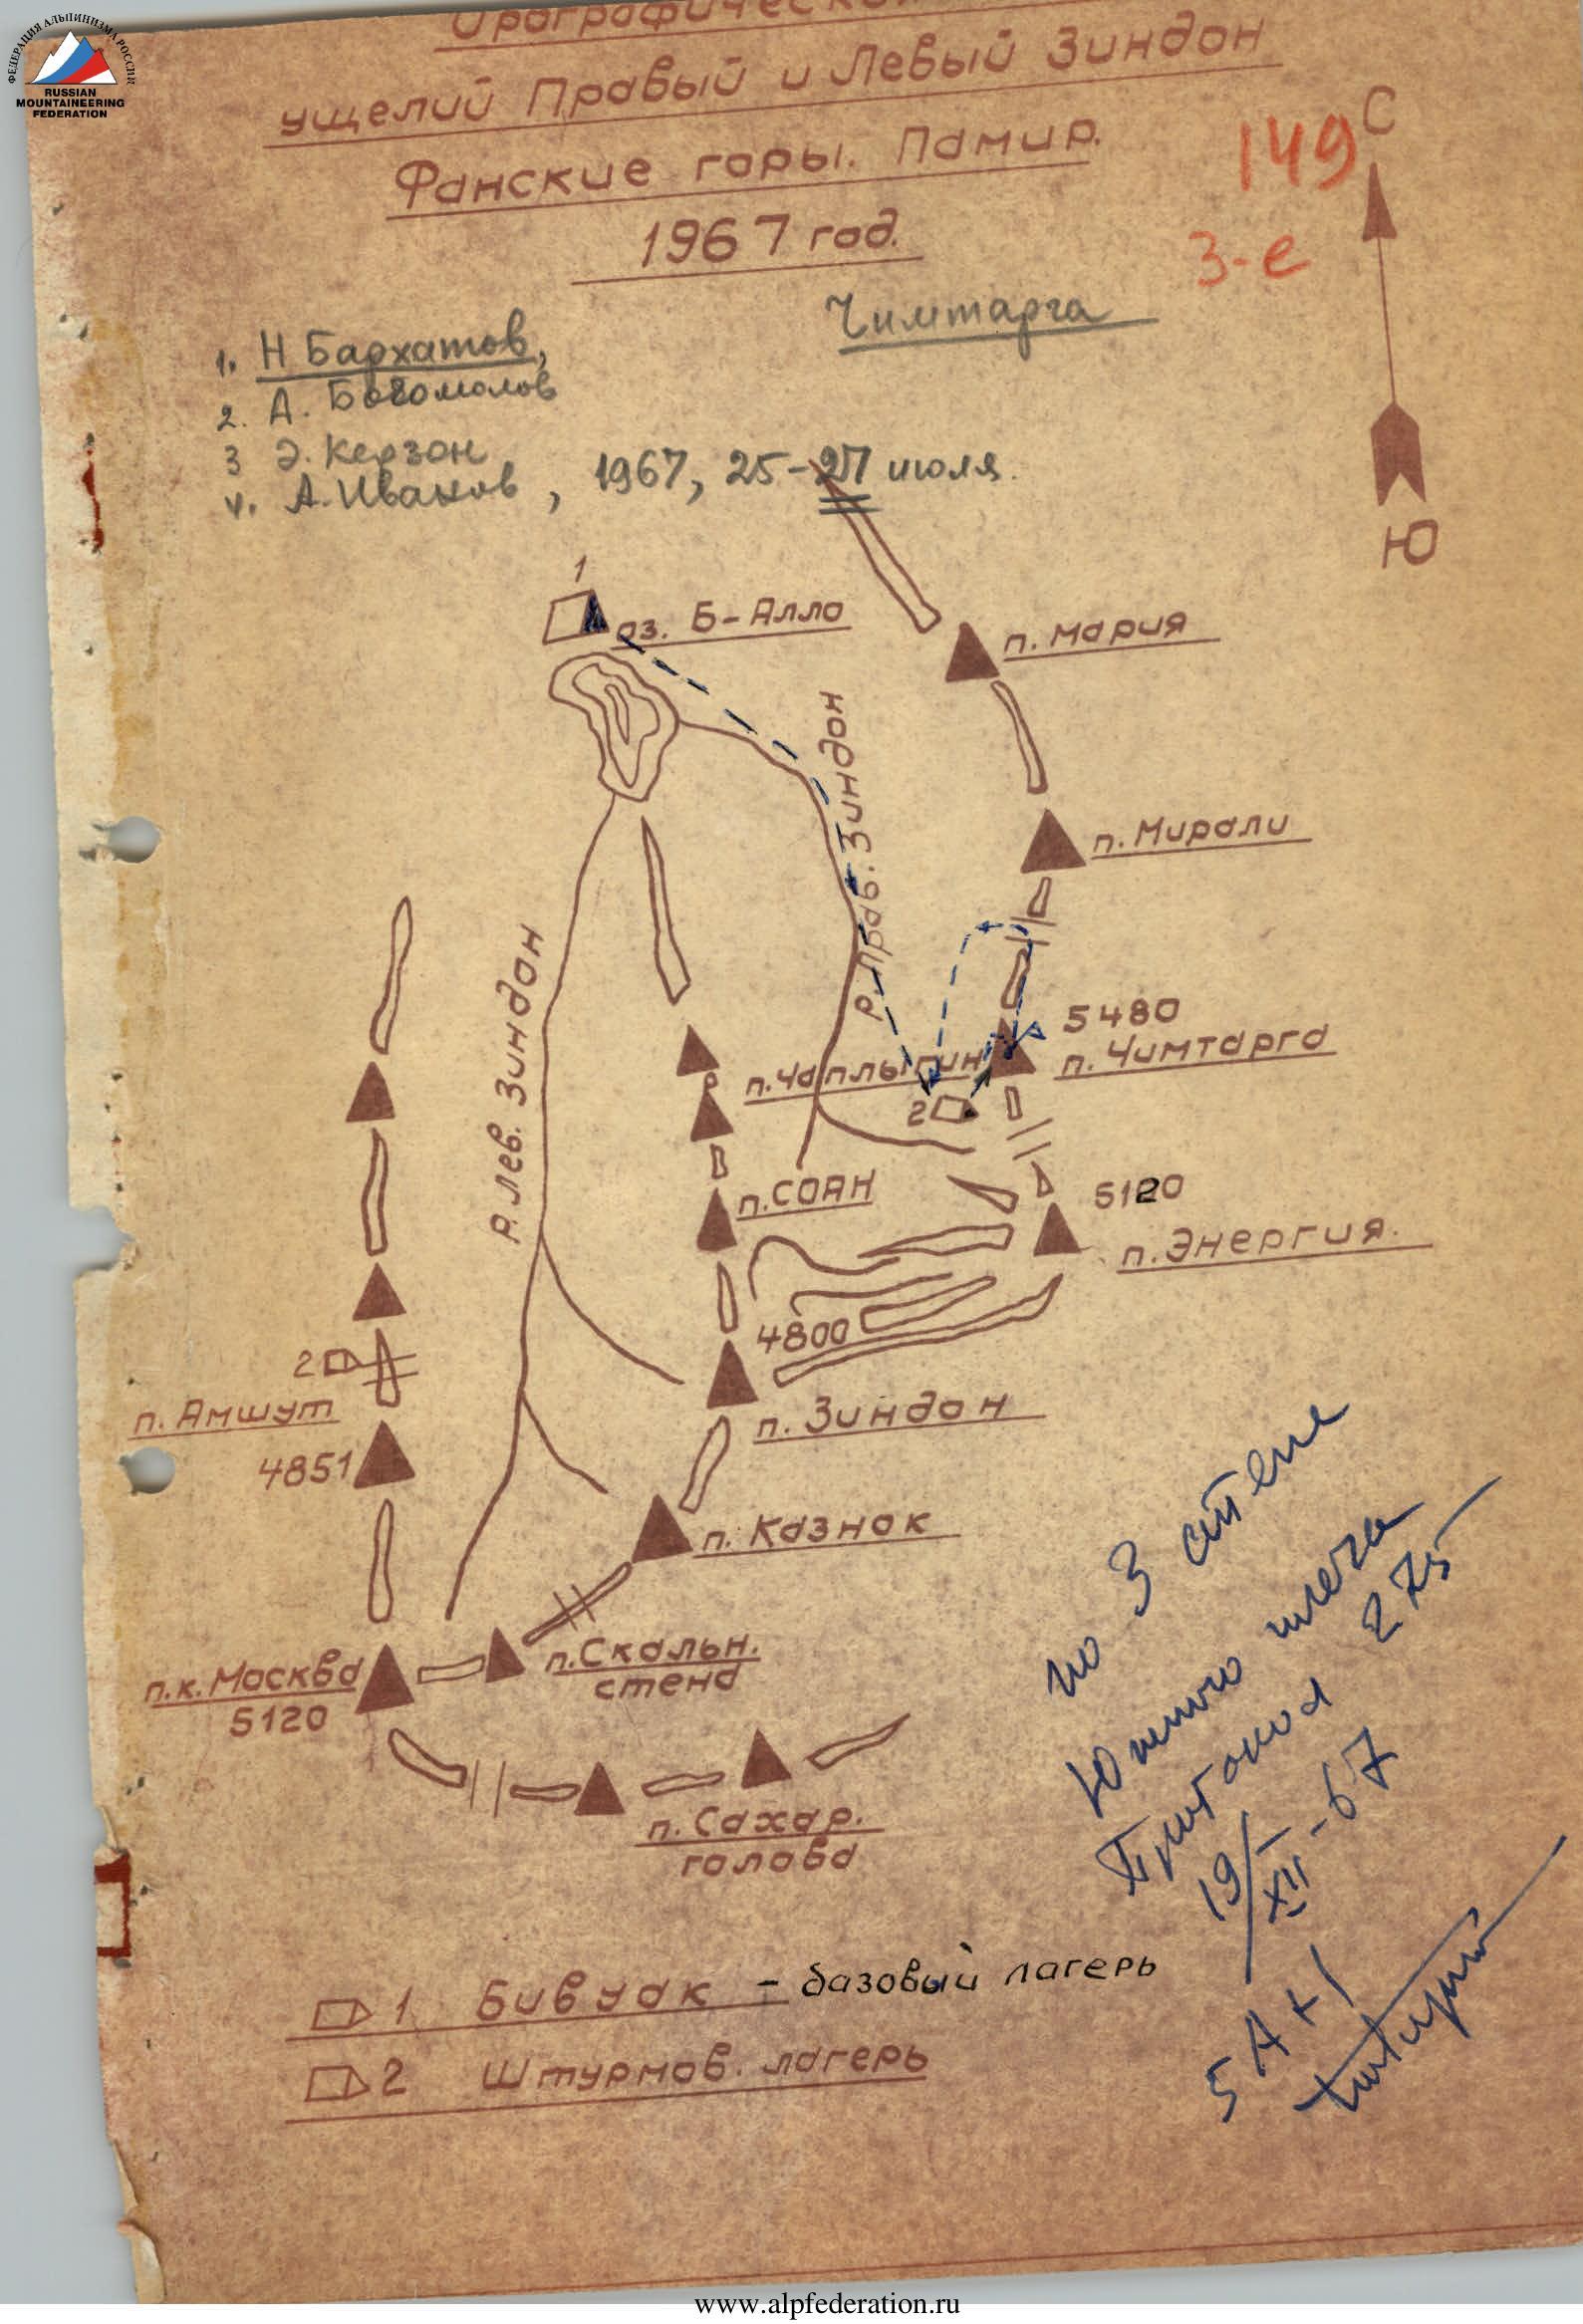 ФЕДЕРАЦИЯ АЛЬПИНИЗМА РОССИИ
RUSSIAN
MOUNTAINEERING
FEDERATION
ущелий Правый и Левый Зиндон
Фанские горы. Памир.
1967 год.
149
3-е
С
Ю
Чимтарга
1. Н Бархатов,
2. А. Богомолов
3 Э. Керзон
4. А. Иванов, 1967, 25-27 июля.
1
оз. Б-Алло
п. Мария
р. Прав. Зиндон
п. Мирали
р. лев. Зиндон
5480
п. Чимтарга
п. Чаплыгин
2
п. СОАН
5120
п. Энергия.
4800
п. Зиндон
2
п. Амшут
4851
п. Казнок
п. Скальн.
стена
п.к. Москва
5120
п. Сахар.
голова
по З стене
Южного плеча
Протокол 275
19/XII-67
5А к/
1 Бивуак - базовый лагерь
2 Штурмов. лагерь
www.alpfederation.ru